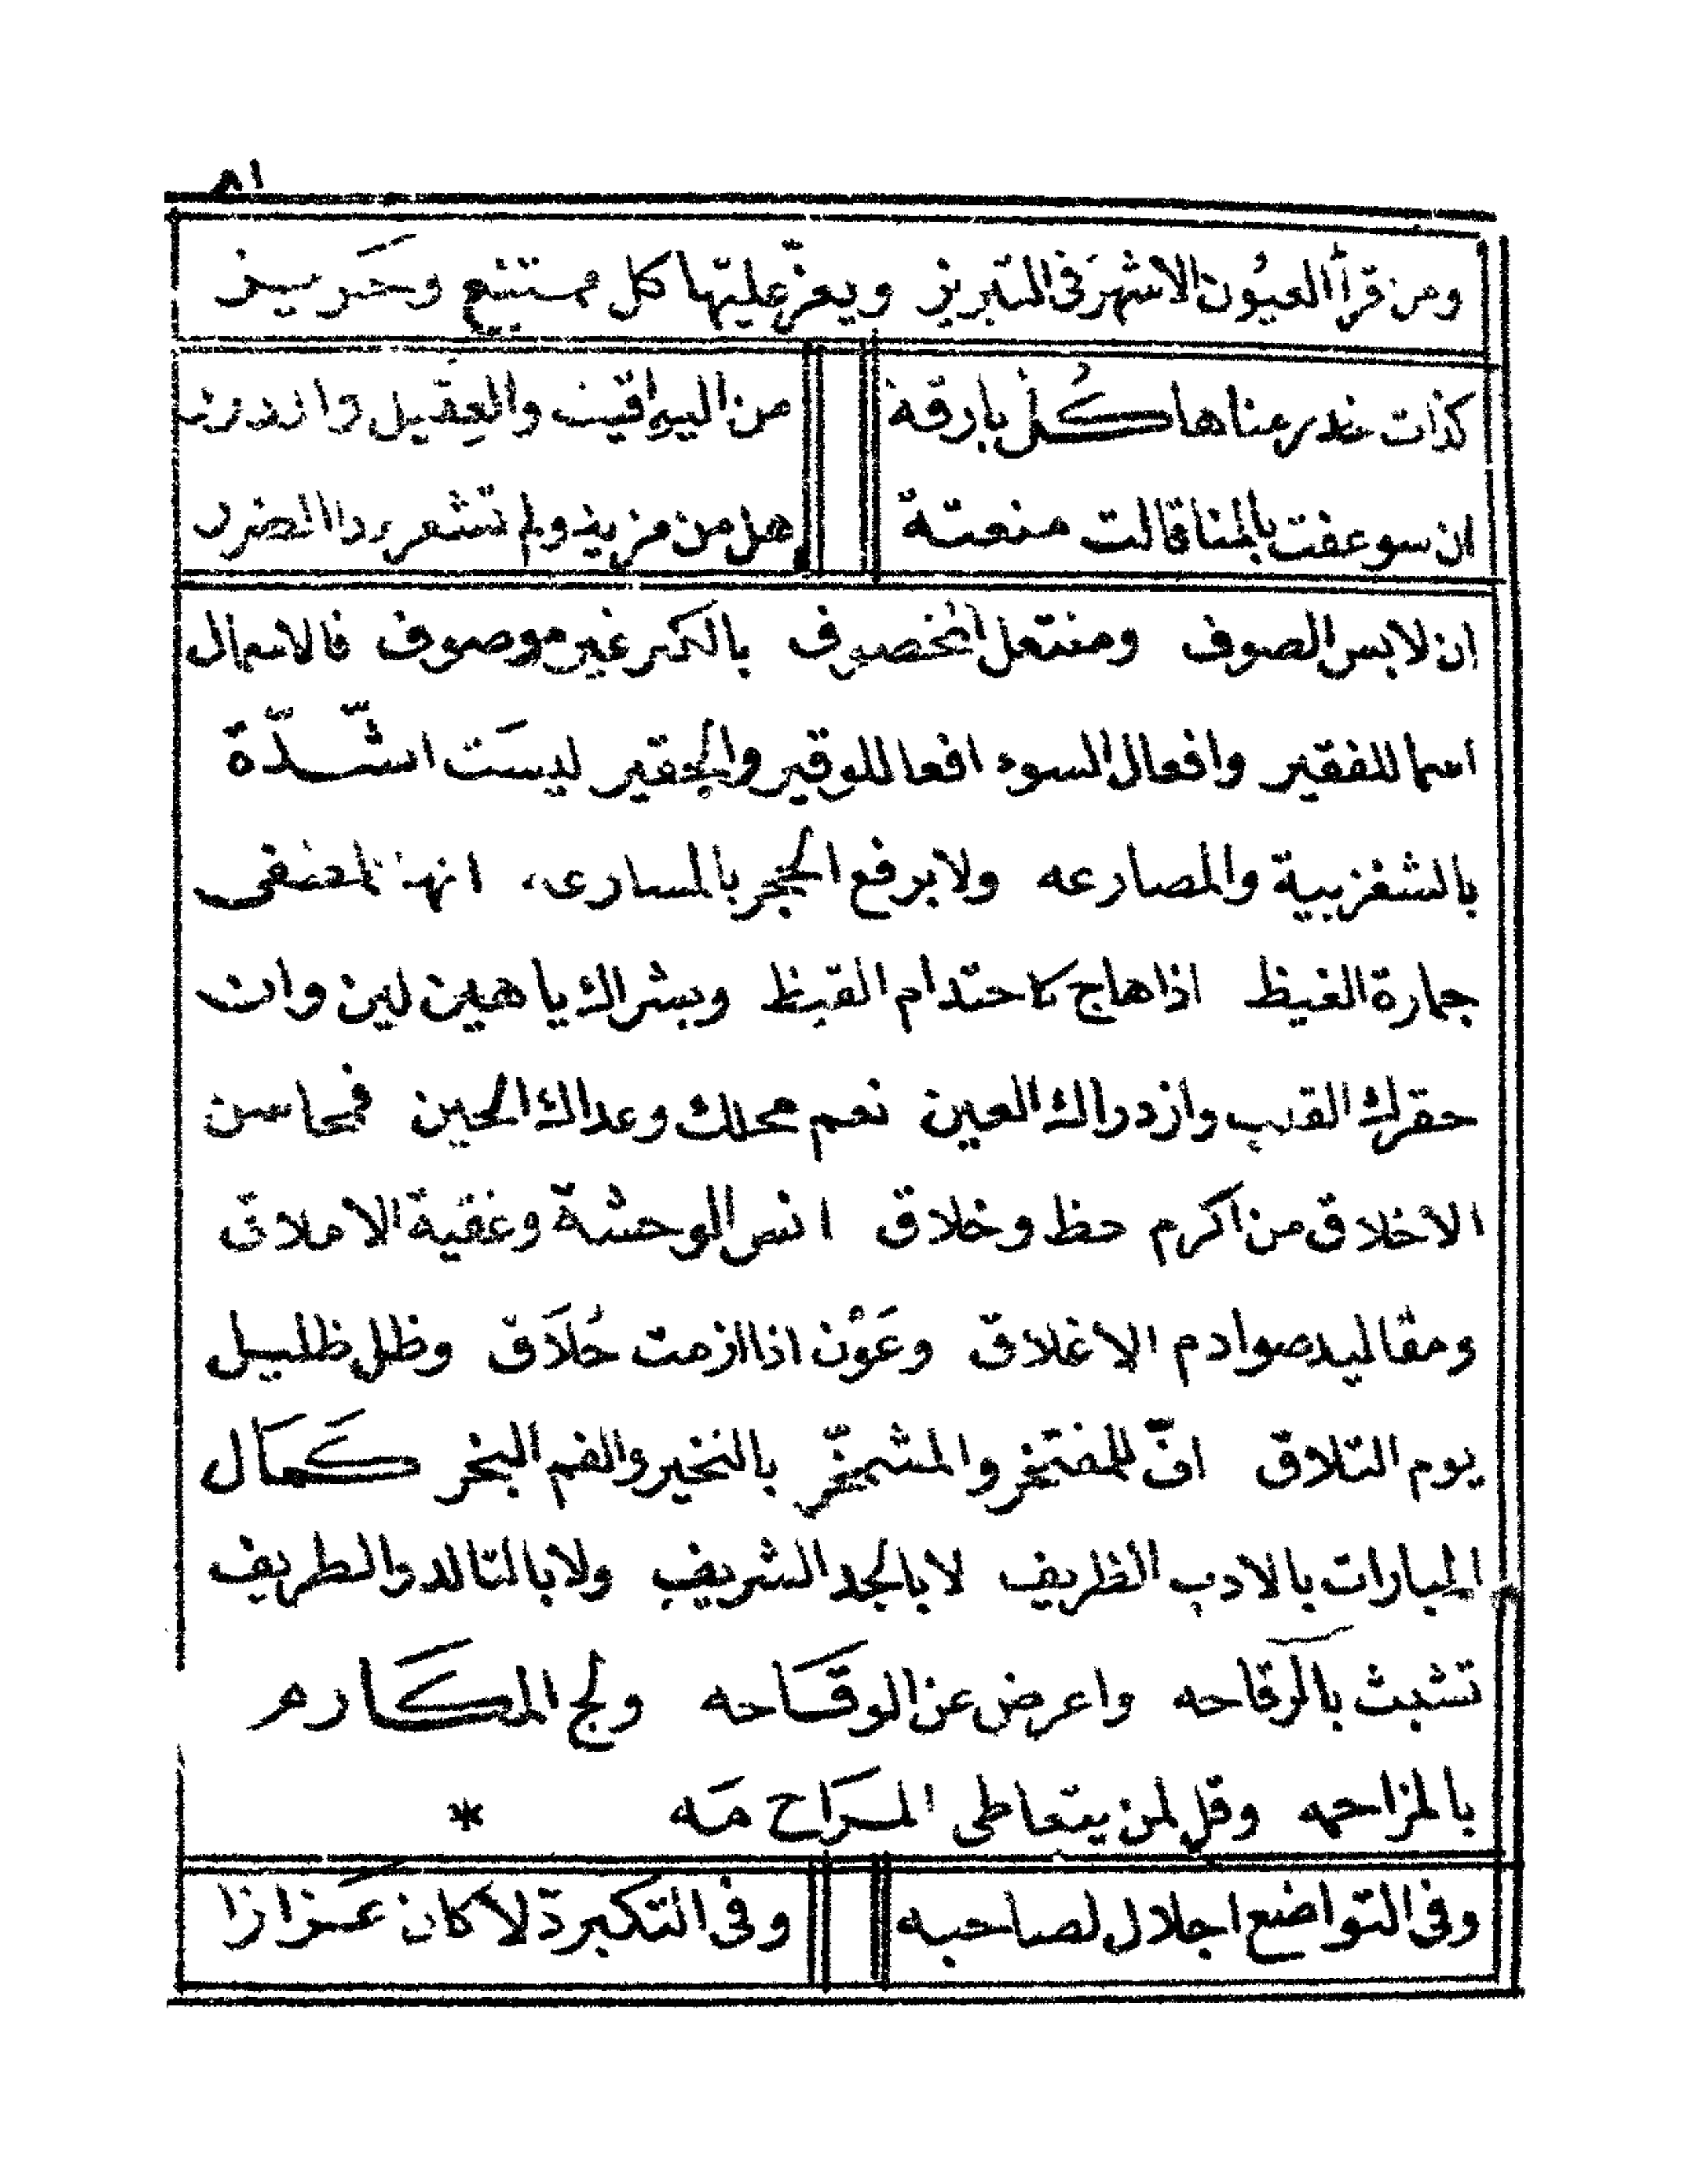 ٨١
ومن قرأ العيون الاشهر فى التبريز ويعزّ عليها كل ممتنع وحَريز
كذات خدر مناها كُلّ بارقة من اليواقيت والعِقيل والدرر
ان سوعفت بالمنا قالت منعتة هل من مزيد ولم تشعر بردا الضرر
ان لابس الصوف ومنتعل المخصوف بالكبر غير موصوف فالاسمال
اسما للفقير وافعال السوء افعا للوقير والحقير ليسَت الشّدّة
بالشغزبية والمصارعه ولا برفع الحجر بالمسارى،
جمارة الغيظ اذا هاج كاحتدام القيظ وبشراك يا هين لين وان
حقرك القلب وازدراك العين نعم محلك وعداك الحين فمحاسن
الاخلاق من اكرم حظ وخلاق انس الوحشة وغقية الاملاق
ومقاليد صوادم الاغلاق وعَوْن اذا ازمت حُلَاق وظل ظليل
يوم التلاق افّ للمفتخر والمشمخّر بالنخير والفم البخر كَمَال
المبارات بالادب الظريف لا بالجد الشريف ولا بالتالد والطريف
تشبث بالرقاحه واعرض عن الوقَاحه ولج المكَارم
بالمزاحمه وقل لمن يتعاطى المرَاح مَه *
وفى التواضع اجلال لصاحبه وفى التكبر ذلا كان عَزازا